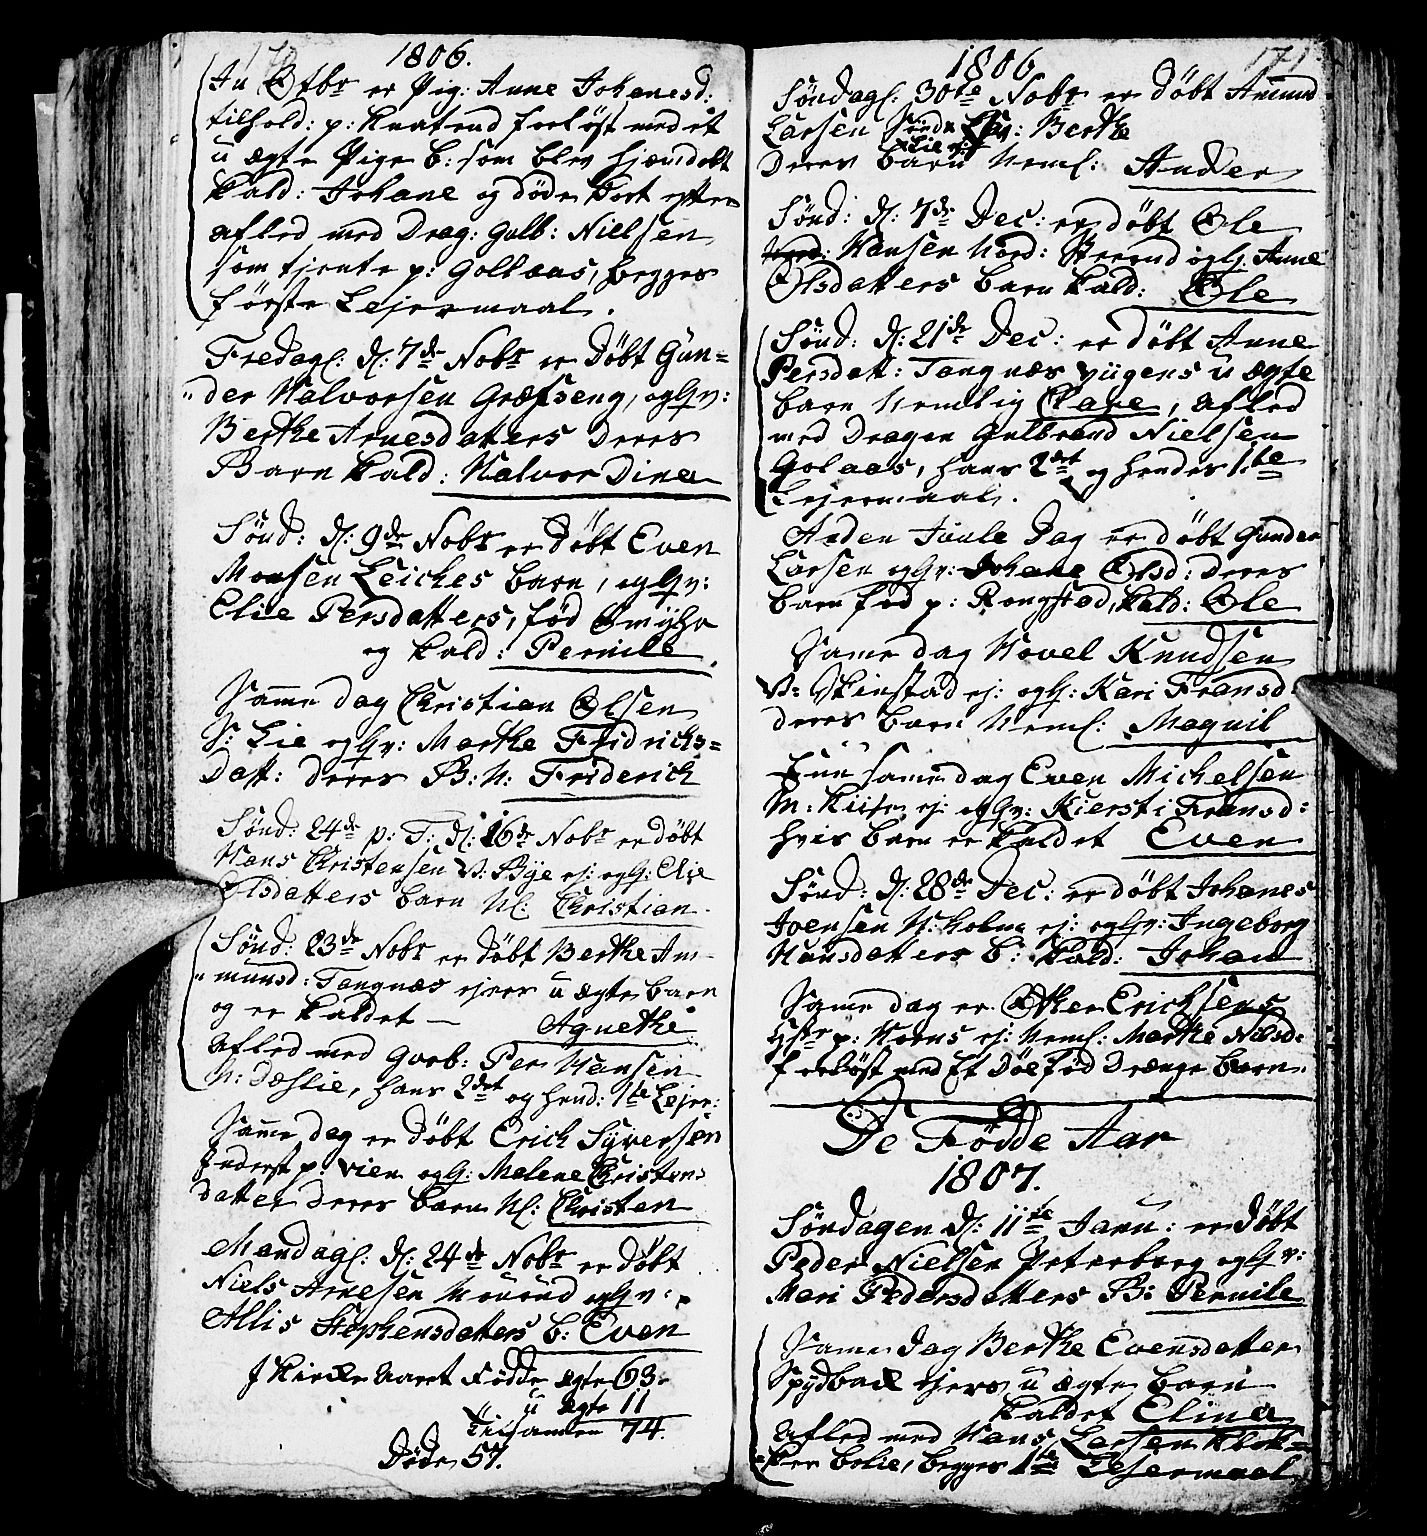 170
1806.
In Octbr er Pig: Anne Johanesd:
tilhold: p: Knatrud forløst med et
u ægte Pige b: som blev hjemdøbt
kald: Johane og døde bort efter
afled med Drag: Gulb: Nielsen
som tjente p: Golaas, begges
første Lejermaal.
Fredagl: d: 7de Nobr er døbt Gun=
der Halvorsen Græfseng, og Hv:
Berthe Arnesdatters deres
Barn kald: Halvor Dina
Sønd: d: 9de Nobr er døbt Even
Monsen Leiches barn, og Hv:
Elie Persdatters, fød
og kald: Pernile
Samme dag Christian Olsen
S: Lie og Hv: Marthe Fridrichs=
Datt: deres B: N: Friderich
Sønd: 24de p: T: d: 16de Nobr er døbt
Hans Christensen V: Bye ej: og H: Elie
Olsdatters barn Nl: Christian
Sønd: 23de Nobr er døbt Berthe Am=
munsd: Tangnæs ejers u ægte barn
og er kaldet — Agnethe
afled med Gvrb: Per Hansen
N: Dæhlie, hans 2det og hend: 1te Lejer:
Samme dag er døbt Erich Syversen
Inderst p: Vien og H: Malene Christens
datter deres barn Nl: Christen
Mandagl: d: 24de Nobr er døbt
Niels Arnesen og Hv:
Allis Stephensdatters b: Even
I Kirke Aaret Fødde ægte 63.
u ægte 11
tilsamen 74.
Døde 57.
171
1806
Søndagl: 30te Nobr er døbt Amund
Larsen Berthe
deres barn Neml: Ander
Sønd: d: 7de Dec: er døbt Ole
Hansen Nord: og H: Anne
Olsdatters barn kald: Ole
Sønd: d: 21de Dec: er døbt Anne
Persdatt: Tangnæs viigens u ægte
barn Nemlig Clare, afled
med Dragon Gulbrand Nielsen
Golaas, hans 2det og hendes 1te
Lejermaal.
Anden Juule Dag er døbt Gunder
Larsen og Hv: Johane Olsd: deres
barn fød p: Rongstad, kald: Ole
Same dag Hovel Knudsen
V: Skinstad ej: og H: Kari Fransd:
deres barn Neml: Magnil
same dag Even Michelsen
M: ej: og Hv: Kiersti Fransd:
hvis barn er kaldet Even
Sønd: d: 28de Dec: er døbt Johanes
Joensen N: Kolna ej: og Hv: Ingeborg
Hansdatters b: kald: Johan
Same dag er Other Erichsens
Hstr p: Horns ej: Neml: Marthe Nilsd:
forløst med Et Døefød Drænge barn.
De Fødde Aar
1807.
Søndagen d: 11te Janu: er døbt
Peder Nielsen Peterborg og Hv:
Mari Pedersdatters B: Pernile
Same dag Berthe Evensdatter
Spydbak ejers u ægte barn
kaldet Elina
afled med Hans Larsen Klok=
ker bolie, begges 1te Lejermaal